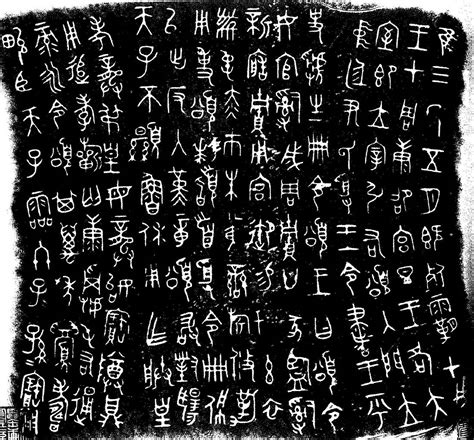 隹三年五月既死霸甲
戌王才周康卲宮旦王各大
室即立宰引右頌入門立
中廷尹氏受王令書王乎
史虢生冊令頌王曰頌令
女官𤔲成周貯廿家監𤔲
新造貯用宮御易女玄衣
黹屯赤巿朱黃䜌旂攸勒用
事頌拜稽首受令冊佩
以出反入堇章頌敢對揚
天子不顯魯休用乍朕皇
考龏叔皇母龏始寶尊鼎
用追孝祈匄康屯右通
彔永令頌其萬年眉壽
畯臣天子霝冬子孫寶用